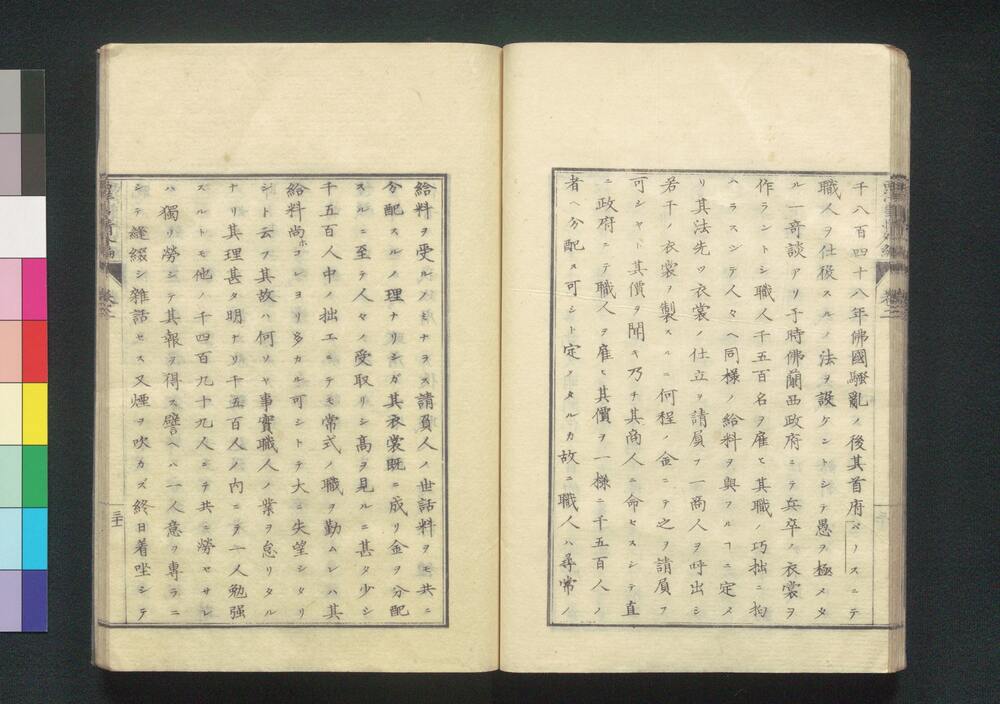 千八百四十八年佛國騷亂ノ後其首府パリスニテ
職人ヲ仕役スルノ法ヲ設ケントシテ愚ヲ極メタ
ル一奇談アリ于時佛蘭西政府ニテ兵卒ノ衣裳ヲ
作ラントシ職人千五百名ヲ雇ヒ其職ノ巧拙ニ拘
ハラスシテ人々ヘ同様ノ給料ヲ與フルヿニ定メ
リ其法先ツ衣裳ノ仕立ヲ請負フ一商人ヲ呼出シ
若干ノ衣裳ヲ製スルニ何程ノ金ニテ之ヲ請負フ
可シヤト其價ヲ聞キ乃チ其商人ニ命セスシテ直
ニ政府ニテ職人ヲ雇ヒ其價ヲ一様ニ千五百人ノ
者ヘ分配ス可シト定メタルカ故ニ職人ハ尋常ノ
給料ヲ受ルノミナラス請負人ノ世話料ヲモ共ニ
分配スルノ理ナリシガ其衣裳既ニ成リ金ヲ分配
スルニ至テ人々ノ受取リシ高ヲ見ルニ甚タ少シ
千五百人中ノ拙工ニテモ常式ノ職ヲ勤ムレハ其
給料尚ホコレヨリ多カル可シトテ大ニ失望シタリ
シト云フ其故ハ何ソヤ事實職人ノ業ヲ怠リタル
ナリ其理甚タ明ナリ千五百人ノ内ニテ一人勉強
スルトモ他ノ千四百九十九人ニテ共ニ勞セサレ
ハ獨リ勞シテ其報ヲ得ス譬ヘハ一人意ヲ專ラニ
シテ縫綴シ雜話セス又煙ヲ吹カズ終日着坐シテ
卷二
三十一